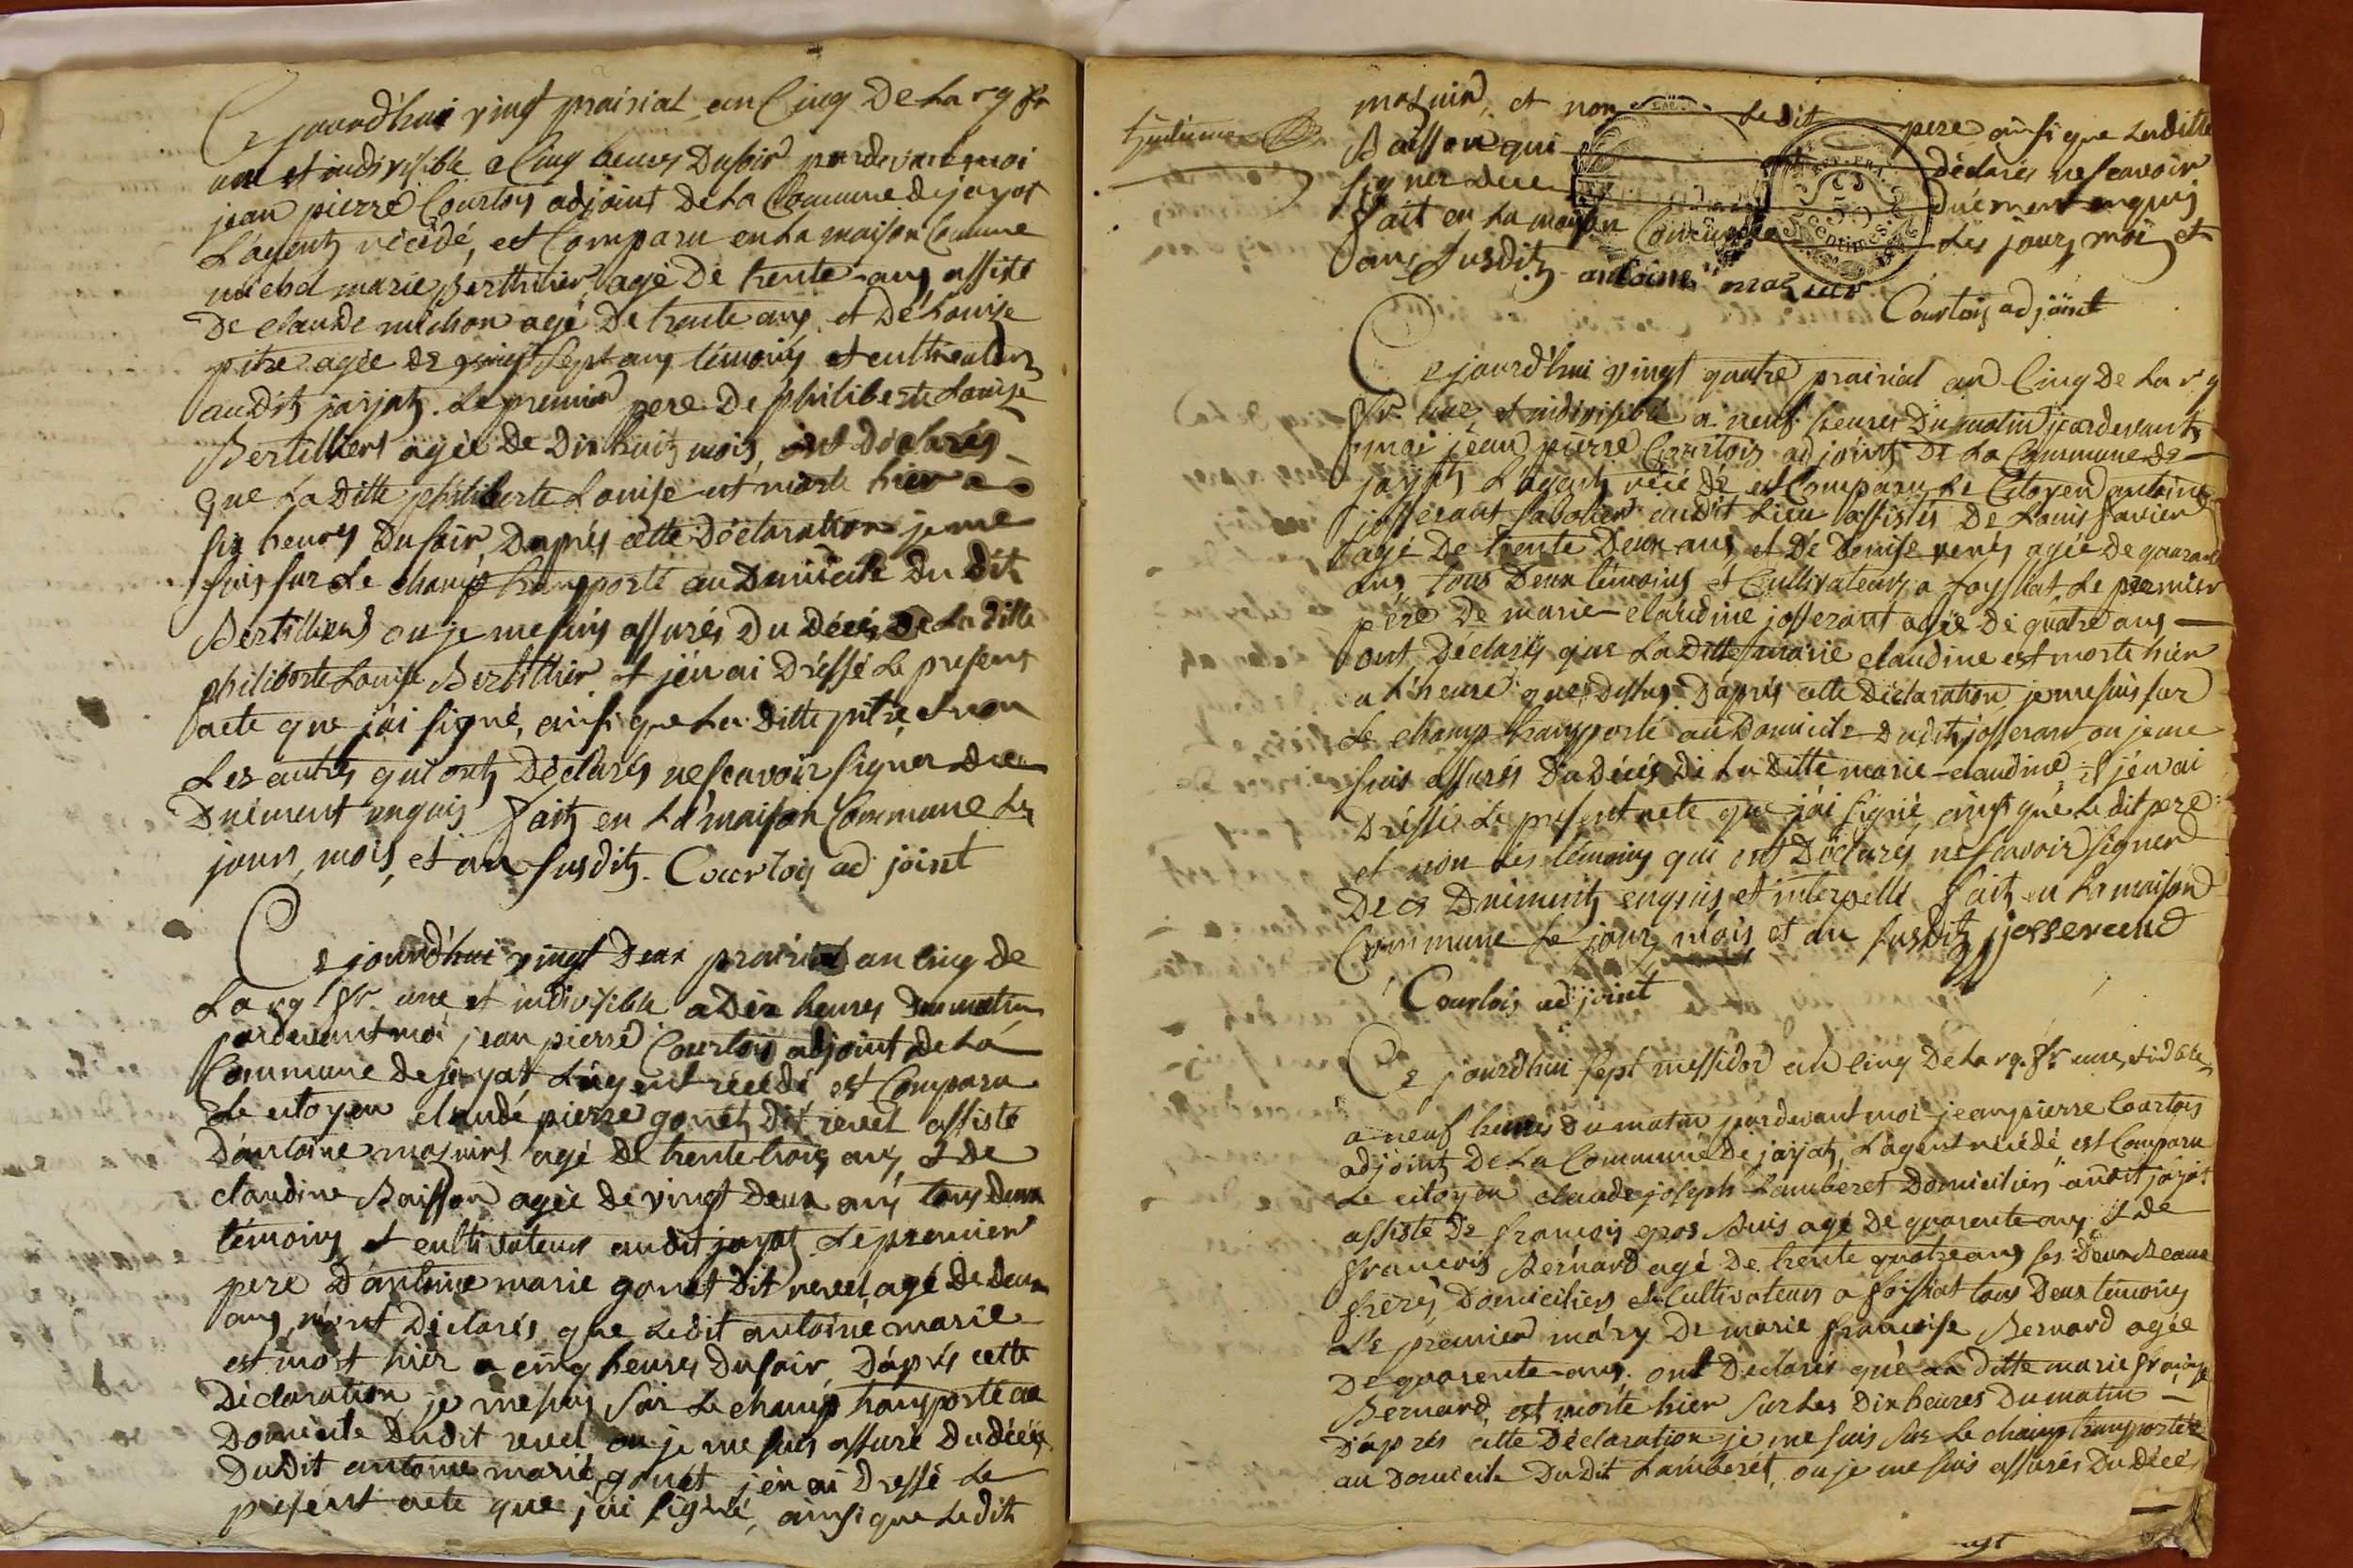 Ce jourd'hui vingt prairial an Cinq De La rq fr
une et indivisible a Cinq heures Du soir pardevant moi
jean pierre Courtois adjoint De La Commune de jayat
L'agent récédé, est Comparu en La maison Comune
michel marie Berthilier agé De trente ans assisté
De claude michon agé De trente ans et De Louise
pitre agée De vingt sept ans témoins et cultivateurs
audit jayat. Le premier pere De philiberte Louise
Bertillier agée De Dix huit mois, ont Déclarés
que La Ditte philiberte Louise est morte hier a
six heures Du soir, D'aprés cette Déclaration je me
suis sur Le champ transporté au Domicile Du Dit
Bertillier ou je me suis assurés Du Décés De La Ditte
philiberte Louise Bertillier et j'én ai Dréssé Le present
acte que j'ai signé, ainsi que La Ditte pitre et non
Les autres qui ont Déclarés ne scavoir signer De ce
Duëment enquis fait en La maison Commune Les
jour, mois, et an susdits. Courtois adjoint
Ce jourd'hui vingt Deux prairial an cinq de
La rq fr une et indivisible a Dix heures Du matin
pardevant moi jean pierre Courtois adjoint De La
Commune De jayat L'agent récédé est Comparu
Le citoyen claude pierre gonet Dit revel assisté
D'antoine mazuir agé De trente trois ans, et De
claudine Baisson agée De vingt Deux ans tous Deux
témoins et cultivateurs audit jayat Le premier
pere D'antoine marie gonet Dit revel agé De Deux
ans, m'ont Déclarés que Ledit antoine marie
est mort hier a cinq heures Du soir, D'aprés cette
Déclaration je me suis sur Le champ transporté au
Domicile Dudit revel ou je me suis assuré Du décés
Dudit antoine marie gonet j'en ai Dressé Le
présent acte que j'ai signé, ainsi que Ledit
mazuir, et non Le dit pere ainsi que Laditte
Baisson qui ont déclarés ne scavoir
signer De ce duëment enquis
fait en La maison Commune Les jour, mois et
an susdits antoine mazuir
Courtois adjoint
Ce jourd'hui vingt quatre prairial an Cinq De La rq
fr. une et indivisible a neuf heures Du matin pardevant
moi jean pierre Courtois adjoint De La Commune De
jayat L'agent récédé est Comparu Le Citoyen antoine
josserant sabotier audit Lieu assistés De Louis favier
agé De trente Deux ans et De Denise agée De quarante
ans, tous Deux témoins et Cultivateurs a foyssiat Le premier
pere De marie claudine josserant agée De quatre ans
ont Déclarés que La Ditte marie claudine est morte hier
a L'heure que Dessus. D'aprés cette Déclaration je me suis sur
Le champ transporté au Domicile Dudit josserant ou je me
suis assurés Du Décés De La Ditte marie claudine, et j'én ai
Dréssé Le présent acte que j'ai signé ainsi que Le dit pere
et non Les témoins qui ont Déclarés ne scavoir signer
De ce Duëment enquis et interpellé fait en La maison
Commune Le jour, mois et an susdits josserand
Courtois adjoint
Ce jourd'hui sept messidor an cinq De La rq. fr. une,
a neuf heures Du matin pardevant moi jean pierre Courtois
adjoint De La Commune De jayat, L'agent récédé est Comparu
Le citoyen claude joseph Lamberet Domicilier audit jayat
assisté De francois gros Buis agé De quarente ans et De
francois Bernard agé De trente quatre ans ses Deux Beaux
freres, Domiciliers et Cultivateurs a foissiat tous Deux témoins
Le premier mary De marie francoise Bernard agée
De quarente ans, ont Déclarés que La Ditte marie francoise
Bernard, est morte hier sur Les Dix heures Du matin
D'aprés cette Déclaration je me suis sur Le champ transportér
au Domicile Du Dit Lamberet, ou je me suis assurés Du Décé